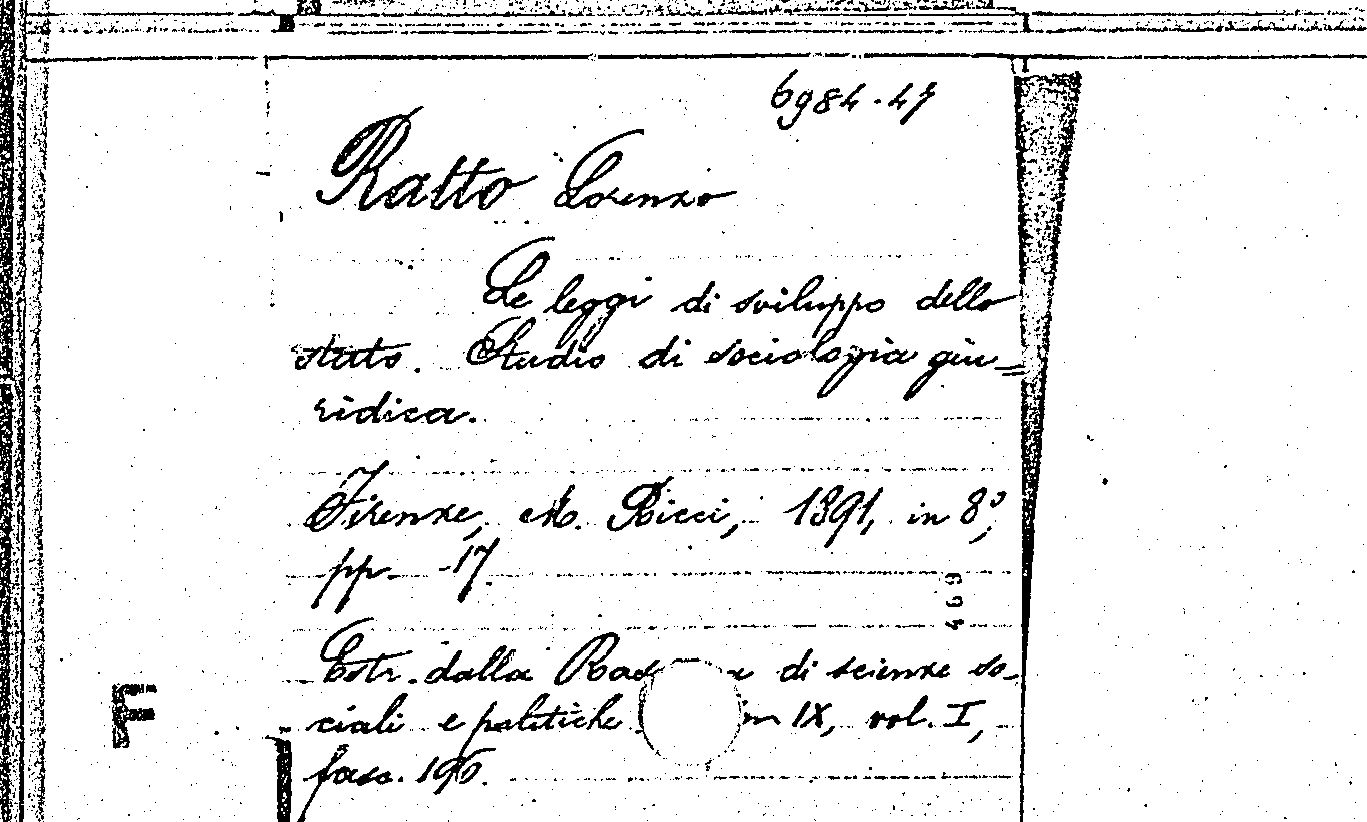 6984.47
Ratto Lorenzo
Le leggi di sviluppo dello
stato. Studio di sociologia giu=
ridica.
Firenze, M. Ricci, 1891, in 8°,
pp. 17.
469
Estr. dalla di scienze so-
ciali e politiche IX, vol. I,
fasc. 196.
F